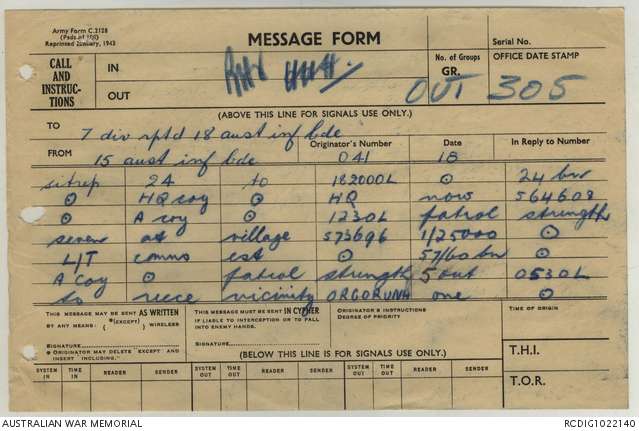 Army Form C.2128
(Pads of 100)
Reprinted January, 1943
MESSAGE FORM
Serial No.
CALL
AND
INSTRUC-
TIONS
IN
OUT
No. of Groups
GR.
OFFICE DATE STAMP
OUT 305
(ABOVE THIS LINE FOR SIGNALS USE ONLY.)
TO 7 div rptd 18 aust inf bde
Originator's Number Date In Reply to Number
FROM 15 aust inf bde 041 18
sitrep 24 to 182000L ⊙ 24 bn
⊙ HQ coy ⊙ HQ now 564608
⊙ A coy ⊙ 1230L patrol strength
seven at village 573696 1/25000 ⊙
L/T comms est ⊙ 57/60 bn ⊙
A Coy ⊙ patrol strength 5 out 0530L
to recce vicinity ORGORUNA one ⊙
THIS MESSAGE MAY BE SENT AS WRITTEN
BY ANY MEANS. (EXCEPT) WIRELESS
SIGNATURE
ORIGINATOR MAY DELETE EXCEPT AND
INSERT INCLUDING."
THIS MESSAGE MUST BE SENT IN CYPHER
IF LIABLE TO INTERCEPTION OR TO FALL
INTO ENEMY HANDS.
SIGNATURE
ORIGINATOR'S INSTRUCTIONS
DEGREE OF PRIORITY
TIME OF ORIGIN
T.H.I.
T.O.R.
(BELOW THIS LINE IS FOR SIGNALS USE ONLY.)
SYSTEM IN TIME IN READER SENDER SYSTEM OUT TIME OUT READER SENDER SYSTEM OUT TIME OUT READER SENDER
AUSTRALIAN WAR MEMORIAL
RCDIG1022140